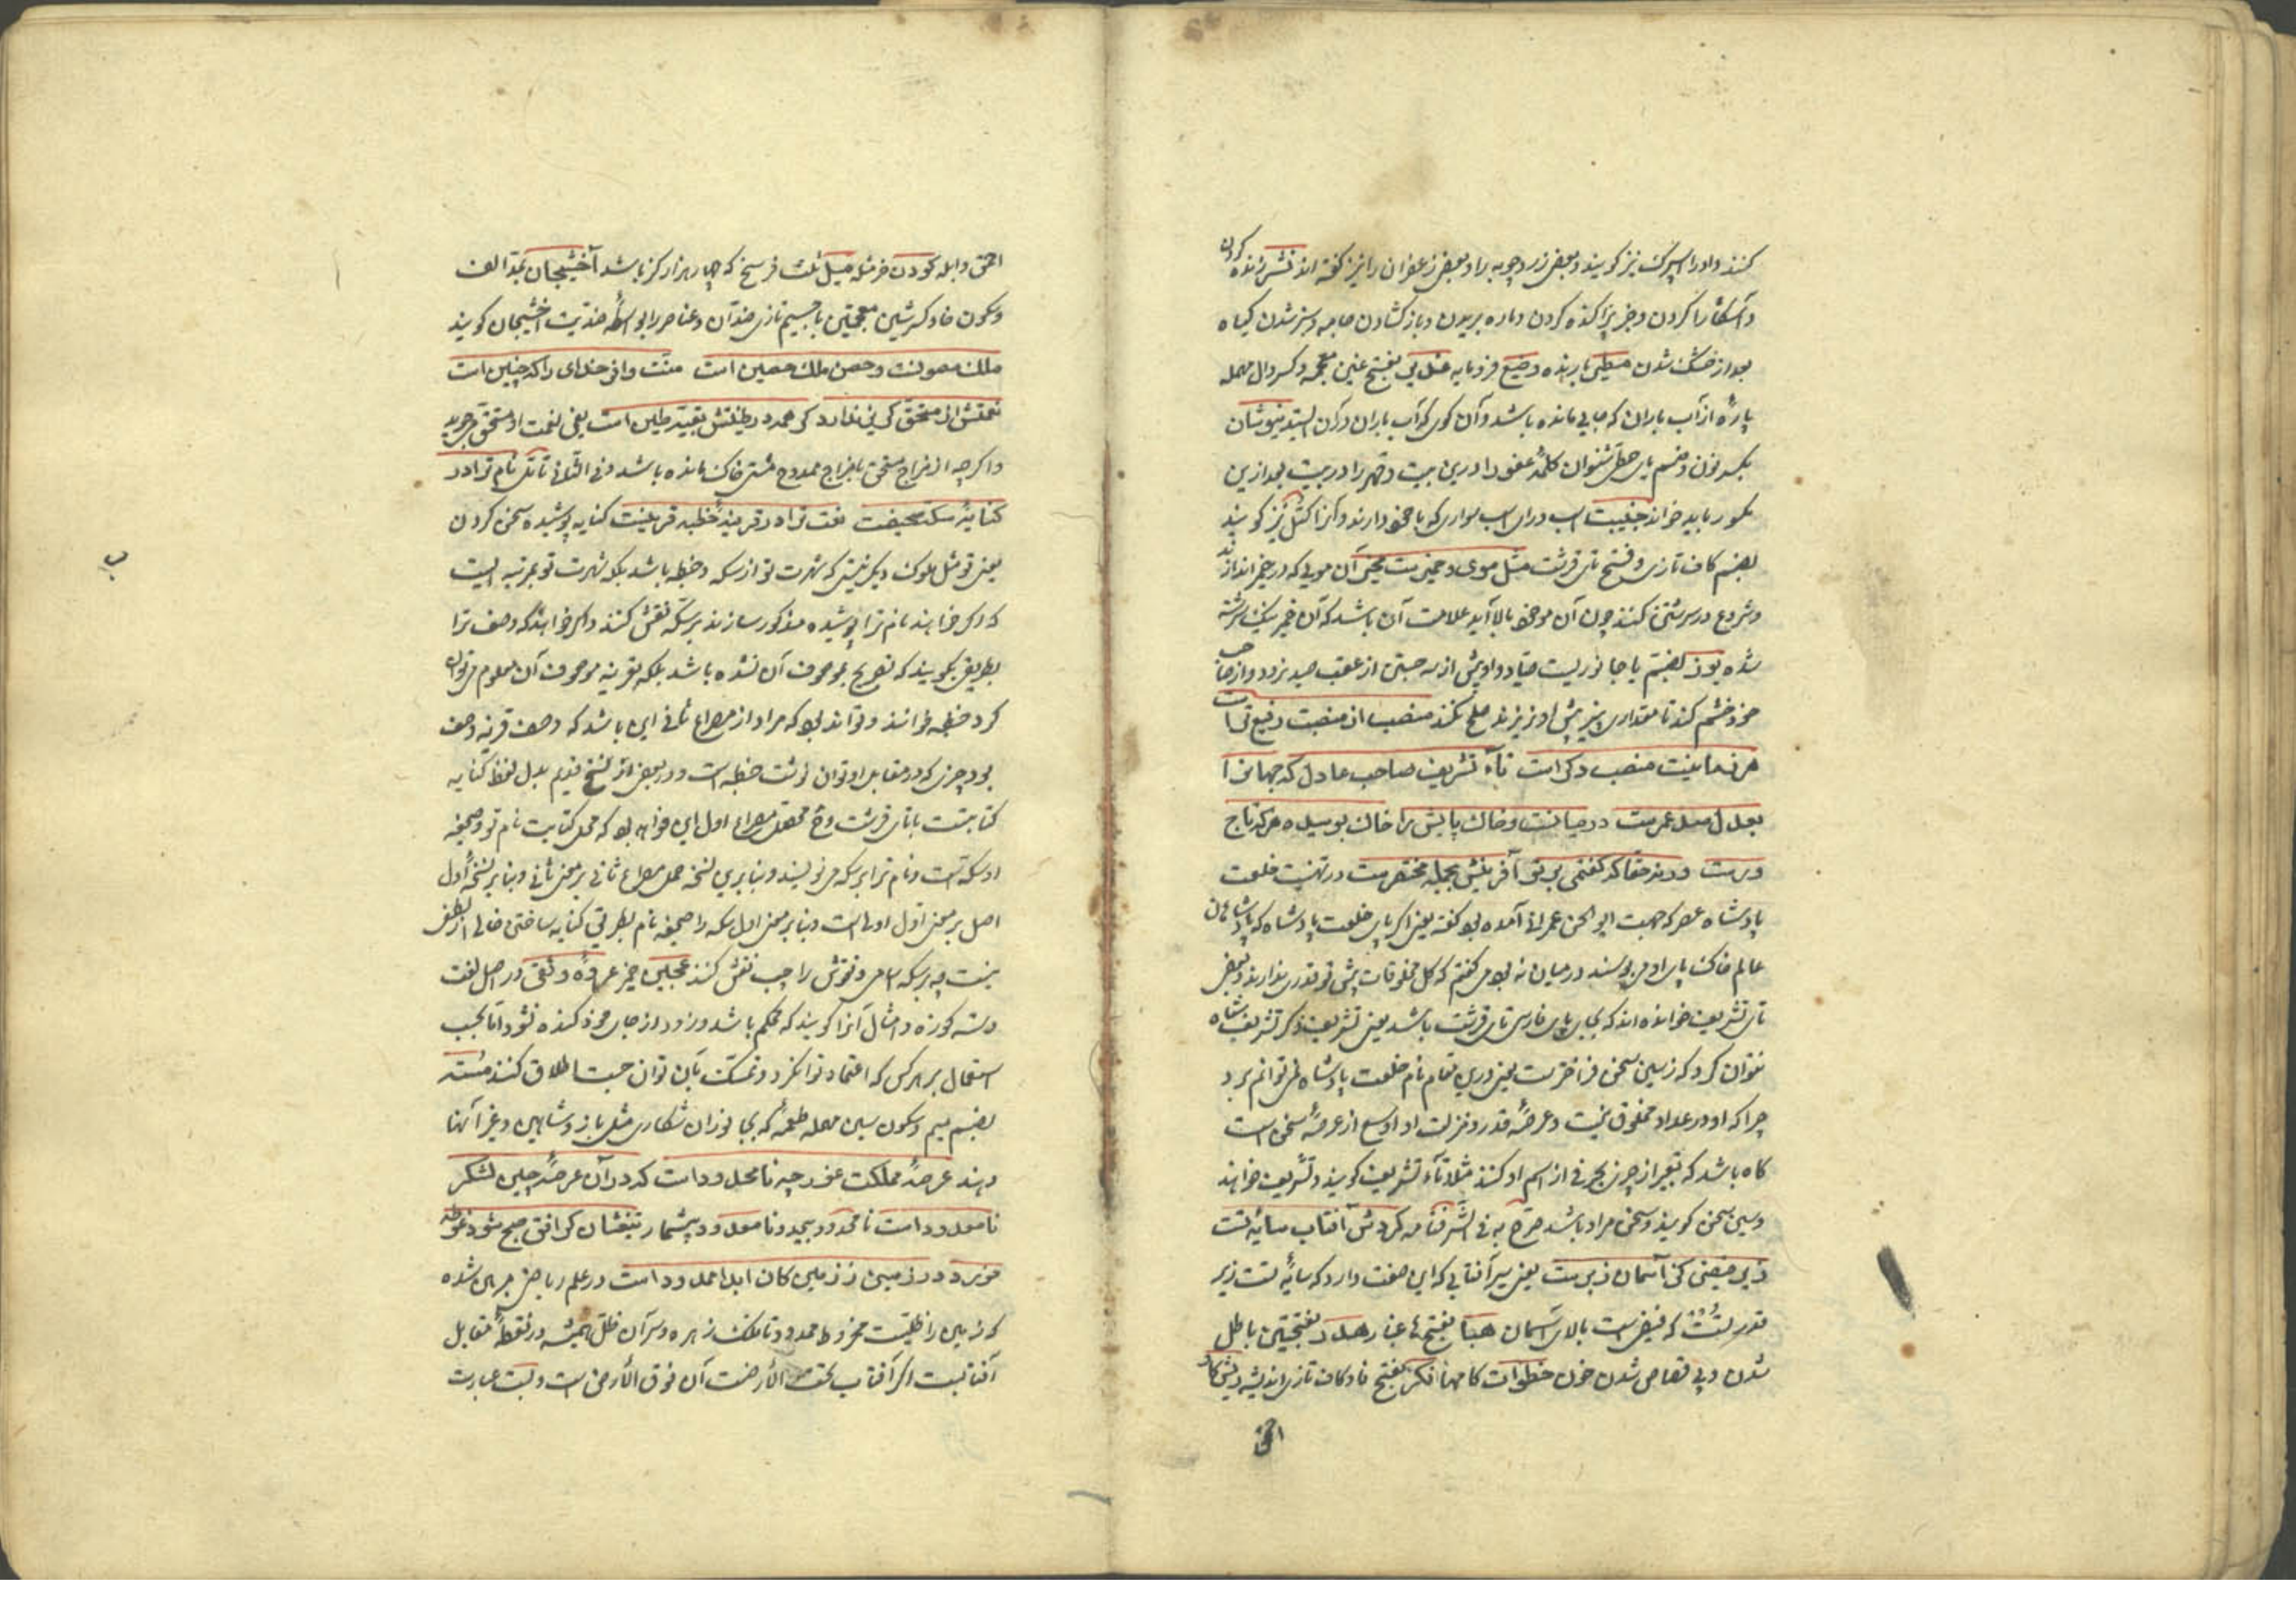 کنند و او را اسپرک نیز گویند و بعضی زردچوبه را و بعضی زعفران را نیز گفته‌اند نشر زنده کردن
و آشکارا کردن و خبر پراکنده کردن و اره بریدن و باز کشادن جامه و سبز شدن گیاه
بعد از خشک شدن مطیر بارنده وضیع فرومایه غدیر بفتح غین معجمه و کسر دال مهمله
پارهٔ از آب باران که جایی مانده باشد و آن کوی که آب باران در آن ایستد نیوشان
بکسر نون و ضم یای حطی شنوان کلمهٔ عفو را درین بیت و قهر را در بیت بعد ازین
مکسور باید خواند جنیبت اسب و آن اسب سواری که با خود دارند و آنرا کتل نیز گویند
بضم کاف تازی و فتح تای قرشت مثل موی و خمیرست یعنی آن مویی که در خمیر اندازند
و شروع در سرشتن کنند چون آن مو بالا آید علامت آن باشد که آن خمیر نیک سرشته
شده یوز بضم یا جانوریست صیاد و او پیش از سه جستن از عقب صید نرود و از صاحب
خود خشم کند تا مقداری پنیر پیش او نریزند صلح نکند منصب از منصبت رفیع‌تر است
هر زمانیت منصب دگر است تاء تشریف صاحب عادل که جهان را
بعدل عمرست در میانست و خاک پایش را خاک بوسیده هر که تاج
ورست ورنه حقا که گفتمی بر تو آفرینش بجمله مختصرست در تهنیت خلعت
پادشاه عصر که جهت ابو الحسن عمرانی آمده بود گفته یعنی اگر پای خلعت پادشاه که پادشاهان
عالم خاک پای او می‌بوسند در میان نه بود می‌گفتم که کل مخلوقات پیش تو قدری ندارند و بعضی
تای تشریف خوانده‌اند که بجای پای فارسی تای قرشت باشد یعنی تشریف ذکر تشریف شاه
نتوان کرد که زسین سخن فراخترست یعنی درین مقام نام خلعت پادشاه نمی‌توانم برد
چرا که او در عداد مخلوق نیست و عرصهٔ قدر و منزلت او اوسع از عرصهٔ سخن است
گاه باشد که تعبیر از چیزی بحرفی از اسم او کنند مثلا تاء تشریف گویند و تشریف خواهند
و سین سخن گویند و سخن مراد باشد صرح به فی الشرفنامه گردش آفتاب سایهٔ تست
زیر فیضی کز آسمان زبرست یعنی سیر آفتابی که این صفت دارد که سایهٔ تست زیر
قدر تست که فیضی است بالای آسمان هبا بفتح ها غبار هدر بفتحتین باطل
شدن و بی قصاص شدن خون خطوات گامها فکر بفتح فا و کاف تازی اندیشه
احمق
احمق و ابله کودن خر میل ثلث فرسخ که چهار هزار گز باشد آخشیجان بمد الف
و سکون خا و کسر شین معجمتین با جیم تازی ضدان و عناصر را بواسطهٔ ضدیت آخشیجان گویند
ملک مصونست و حصن ملک حصین است منت وافر خدای را که چنین است
نعمتش از مستحق گزیر ندارد گر همه در طینتش بقیت طین است یعنی نعمت او مستحق می‌جوید
و اگر چه از مزاج مستحق یا مزاج ممدوح مشتی خاک مانده باشد تا نام تو در
کنایهٔ سکه صحیفت نعت تو در قرینهٔ خطبه قرینست کنایه پوشیده سخن کردن
یعنی تو مثل ملوک دیگر نیستی که شهرت تو از سکه و خطبه باشد بلکه شهرت تو بمرتبه ایست
که اگر خواهند نام ترا پوشیده مذکور سازند بر سکه نقش کنند و اگر خواهند که وصف ترا
بطریقی بگویند که تصریح بموصوف آن نشده باشد بلکه بقرینه موصوف آن معلوم می‌توان
کرد خطبه خوانند و تواند بود که مراد از مصراع ثانی این باشد که وصف قرینه وصف
بود چیزی که در مقابل او توان نوشت خطبه است و در بعضی از نسخ قدیم بدل لفظ کنایه
کتابتست با تای قرشت و ح محصل مصراع اول این خواهد بود که محل کتابت نام تو و صحیفه
او سکه است و نام ترا بر سکه می‌نویسند و بنا برین نسخه حمل مصراع ثانی بر معنی ثانی و بنا بر نسخهٔ اول
اصل بر معنی اول اولی است و بنا بر معنی اول سکه را صحیفه نام بطریق کنایه ساختن خالی از لطف
نیست چه بر سکه اسامی و نقوش را چپ نقش کنند عجین خمیر عروه وثقی در اصل لغت
دسته کوزه و امثال آنرا گویند که محکم باشد و زود از جای خود کنده نشود اما بحسب
استعمال بر هر کس که اعتماد توان کرد و تمسک بآن توان جست اطلاق کنند مسته
بضم میم و سکون سین مهمله طعمهٔ که بجانوران شکاری مثل باز و شاهین و غیر آنها
دهند عرصهٔ مملکت غور چه نامحدودست که در آن عرصه چنین لشکر
نامعدودست نامحدود بیحد و نامعدود بیشمار تیغشان گر افق صبح شود غوطه
خورد در زمین کان ابدا ممدودست در علم ریاضی مبرهن شده
که زمین را ظلیست مخروط ممدود تا فلک زهره و سر آن ظل همیشه در نقطهٔ مقابل
آفتابست اگر آفتاب تحت الأرضست آن فوق الأرض است و عبارت